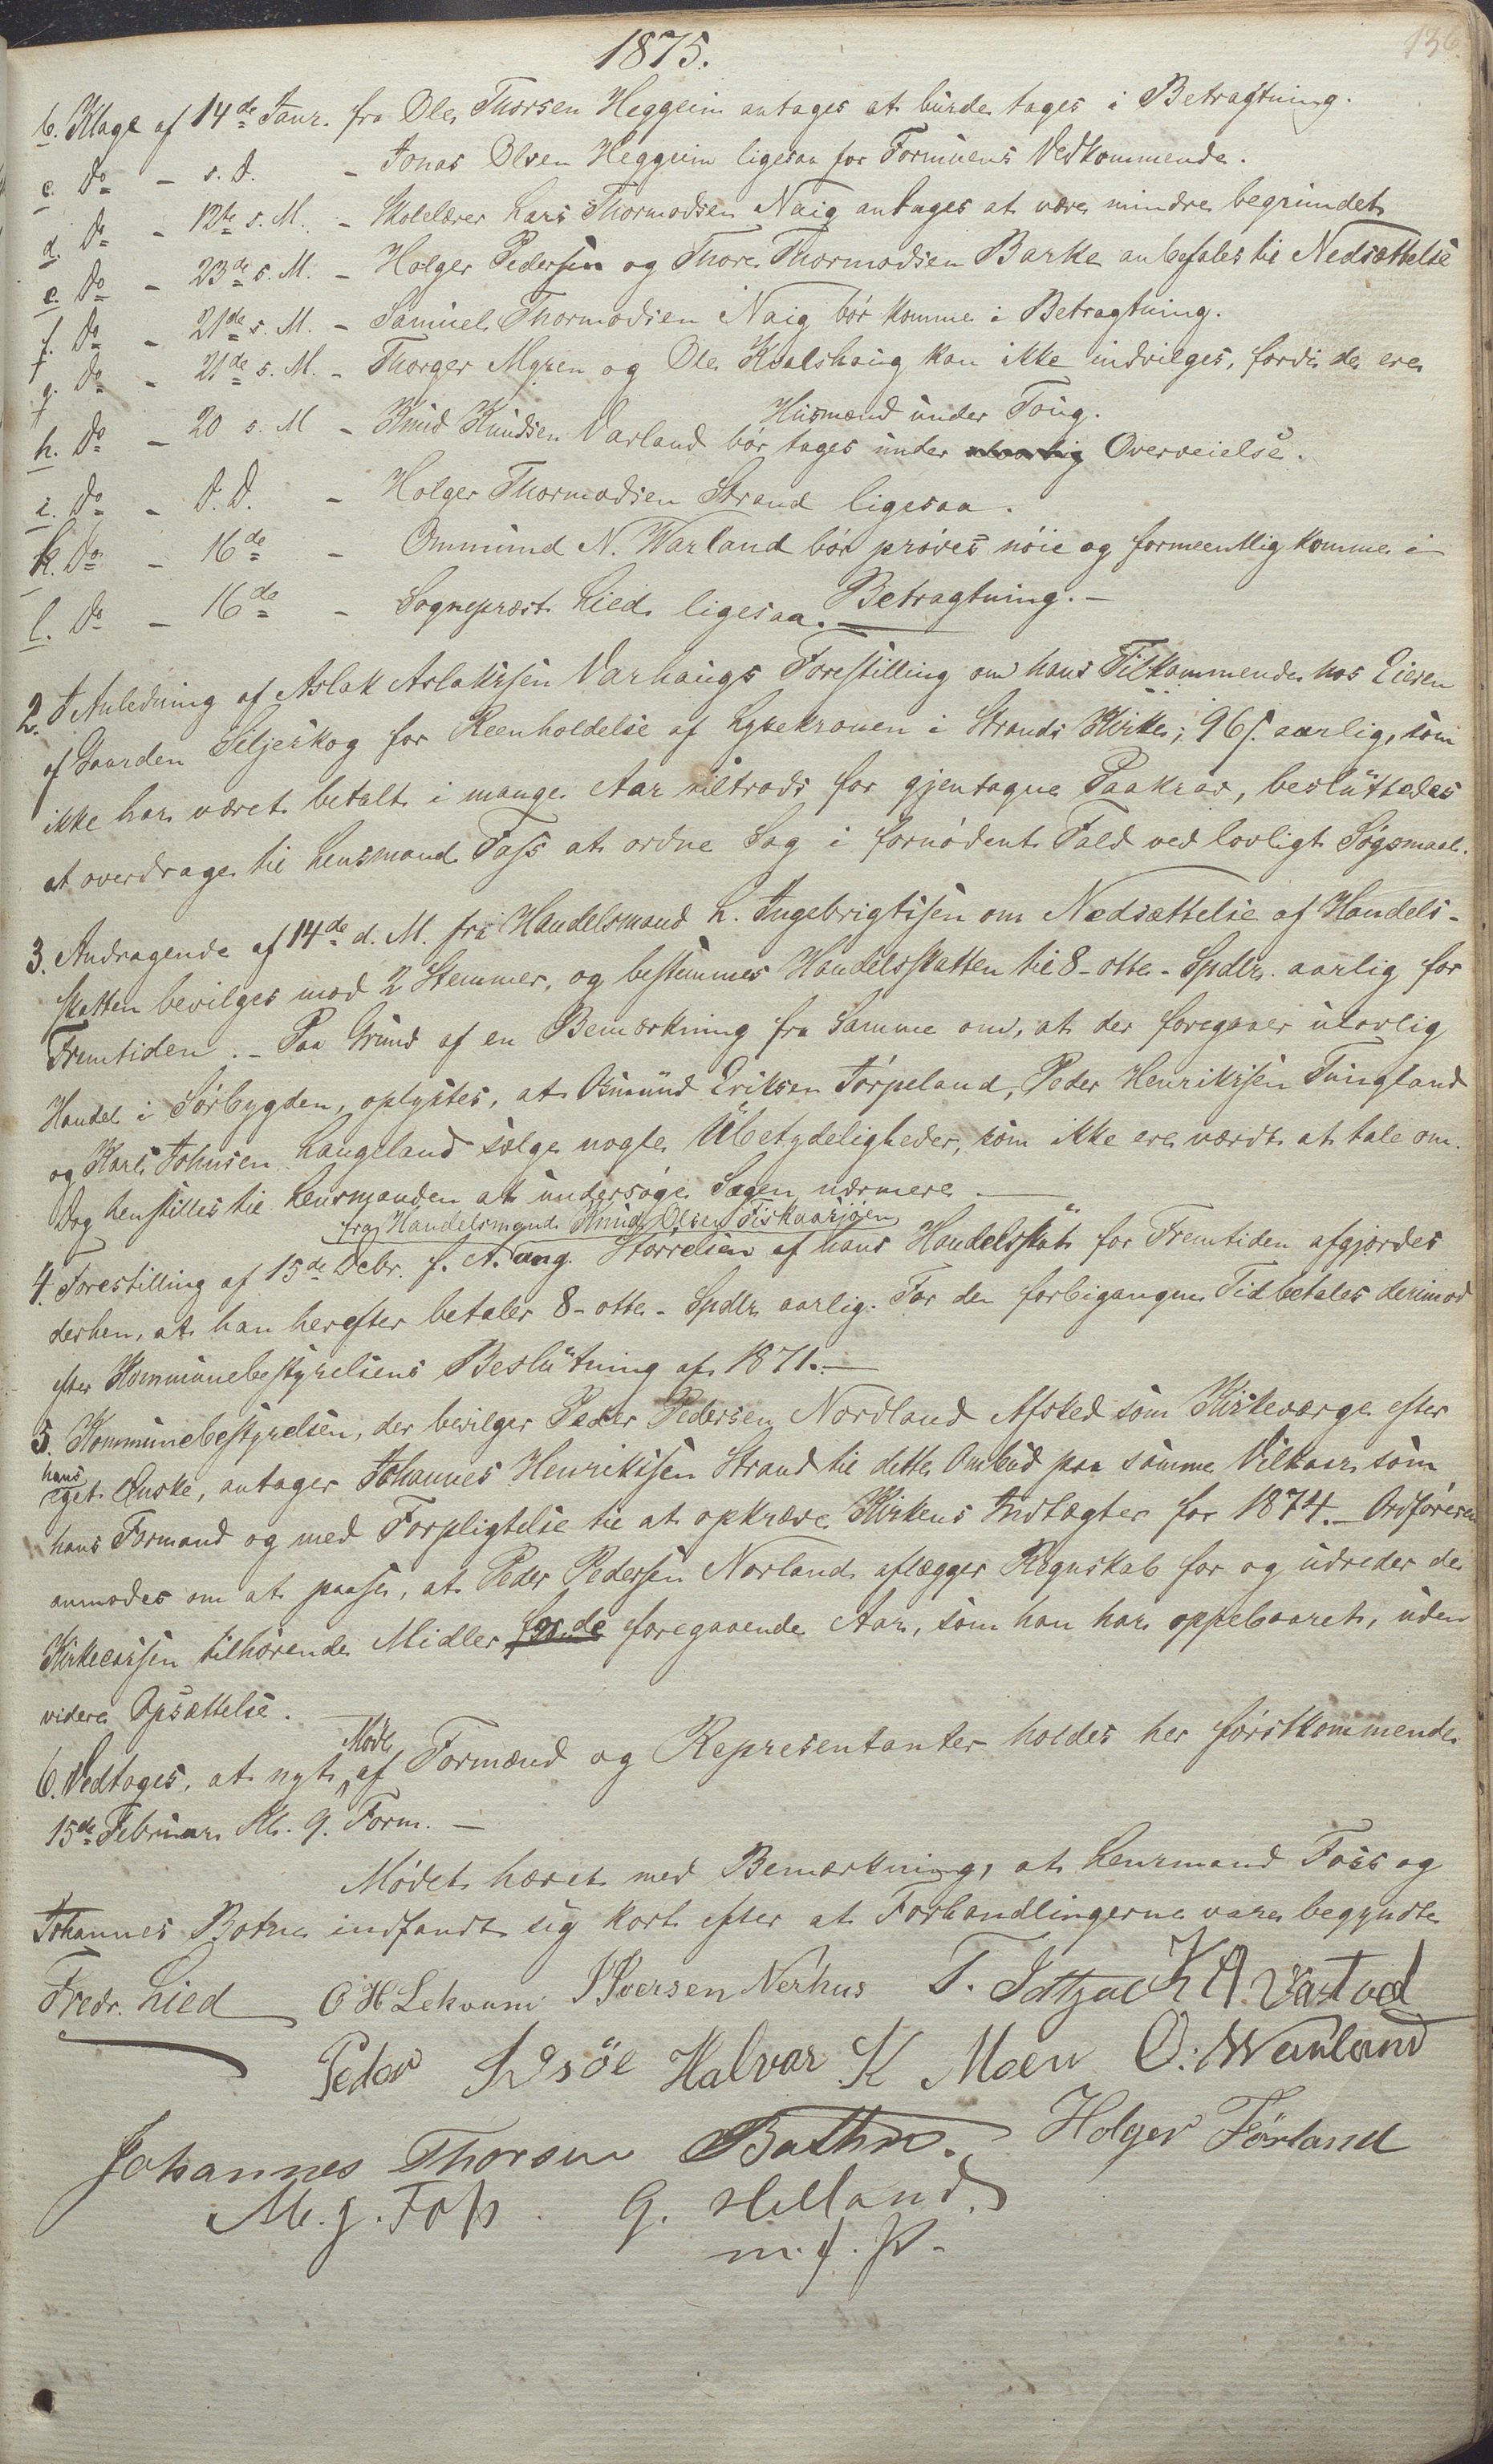 136.
1875.
b. Klage af 14de Janr. fra Ole Thorsen Heggeim antages at burde tages i Betragtning.
c. Do - s. D. - Jonas Olsen Heggeim ligesaa for Formuens Vedkommende.
d. Do - 12te s. M. - Skolelærer Lars Thormodsen Naig antages at være mindre begrundet
e. Do - 23de s. M. - Holger Pedersen og Thore Thormodsen Barke anbefales til Nedsættelse
f. Do - 21de s. M. - Samuel Thormodsen Naig bör komme i Betragtning.
g. Do - 21de s. M. - Thorger Myren og Ole Kvalshaug kan ikke indvilges, fordi de ere
Husmænd under Toug.
h. Do - 20 s. M - Knud Knudsen Varland bör tages under alvorlig Overveielse.
i. Do - D. D. - Holger Thormodsen Strand ligesaa.
k. Do - 16de - Ommund N. Warland bör pröves nöie og formeentlig komme i
Betragtning. -
l. Do - 16de - Sognepræst Lied ligesaa.
2. I Anledning af Aslak Aslaksen Varhaugs Forestilling om hans Tilkommende hos Eieren
af Gaarden Seljeskog for Reenholdelse af Lysekronen i Strands Kirke; 96 s. aarlig, som
ikke har været betalt i mange Aar tiltrods for gjentagne Paakrav, besluttedes
at overdrage til Lensmand Foss at ordne Sag i fornödent Fald ved lovligt Sögsmaal.
3. Andragende af 14de d. M. fra Handelsmand L. Ingebrigtsen om Nedsættelse af Handels-
skatten bevilges mod 2 Stemmer, og bestemmes Handelsskatten til 8 - otte - Spdlr. aarlig for
Fremtiden. - Paa Grund af en Bemærkning fra Samme om, at der foregaaer ulovlig
Handel i Sörbygden, oplystes, at Osmund Eriksen Törpeland, Peder Henriksen Tungland
og Karl Johnsen Laugeland sælge nogle Ubetydeligheder, som ikke ere værdt at tale om.
Dog henstilles til Lensmanden at undersöge Sagen nærmere. -
fra Handelsmand Knud Olsen Fiskaasjöen
4. Forestilling af 15de Decbr. f. A. ang. Störrelsen af hans Handelsskat for Fremtiden afgjordes
derhen, at han herefter betaler 8 - otte - Spdlr. aarlig. For den forbigangne Tid betales derimod
efter Kommunebestyrelsens Beslutning af 1871. -
5. Kommunebestyrelsen, der bevilger Peder Pedersen Nordland Afsked som Kirkeværge efter
hans
eget Önske, antager Johannes Henriksen Strand til dette Ombud paa samme Vilkaar som
hans Formand og med Forpligtelse til at opkræve Kirkens Indtægter for 1874. - Ordföreren
anmodes om at paase, at Peder Pedersen Norland aflægger Regnskab for og udreder de
Kirkecassen tilhörende Midler for de foregaaende Aar, som han har oppebaaret, uden
videre Opsættelse.
Möde
6. Vedtoges, at nyt af Formænd og Representanter holdes her förstkommende
15de Februar Kl. 9. Form. -
Mödet hævet med Bemærkning, at Lensmand Foss og
Johannes Botne indfandt sig kort efter at Forhandlingerne vare begyndte
Fredr. Lied O H Lekvam I Iversen Nerhus T. K A Vastved
Peder Halvar K Moen O: Warland
Johannes Thorsen Bothne. Holger Förland
M. G. Foss. G. Helland.
m. f. P.